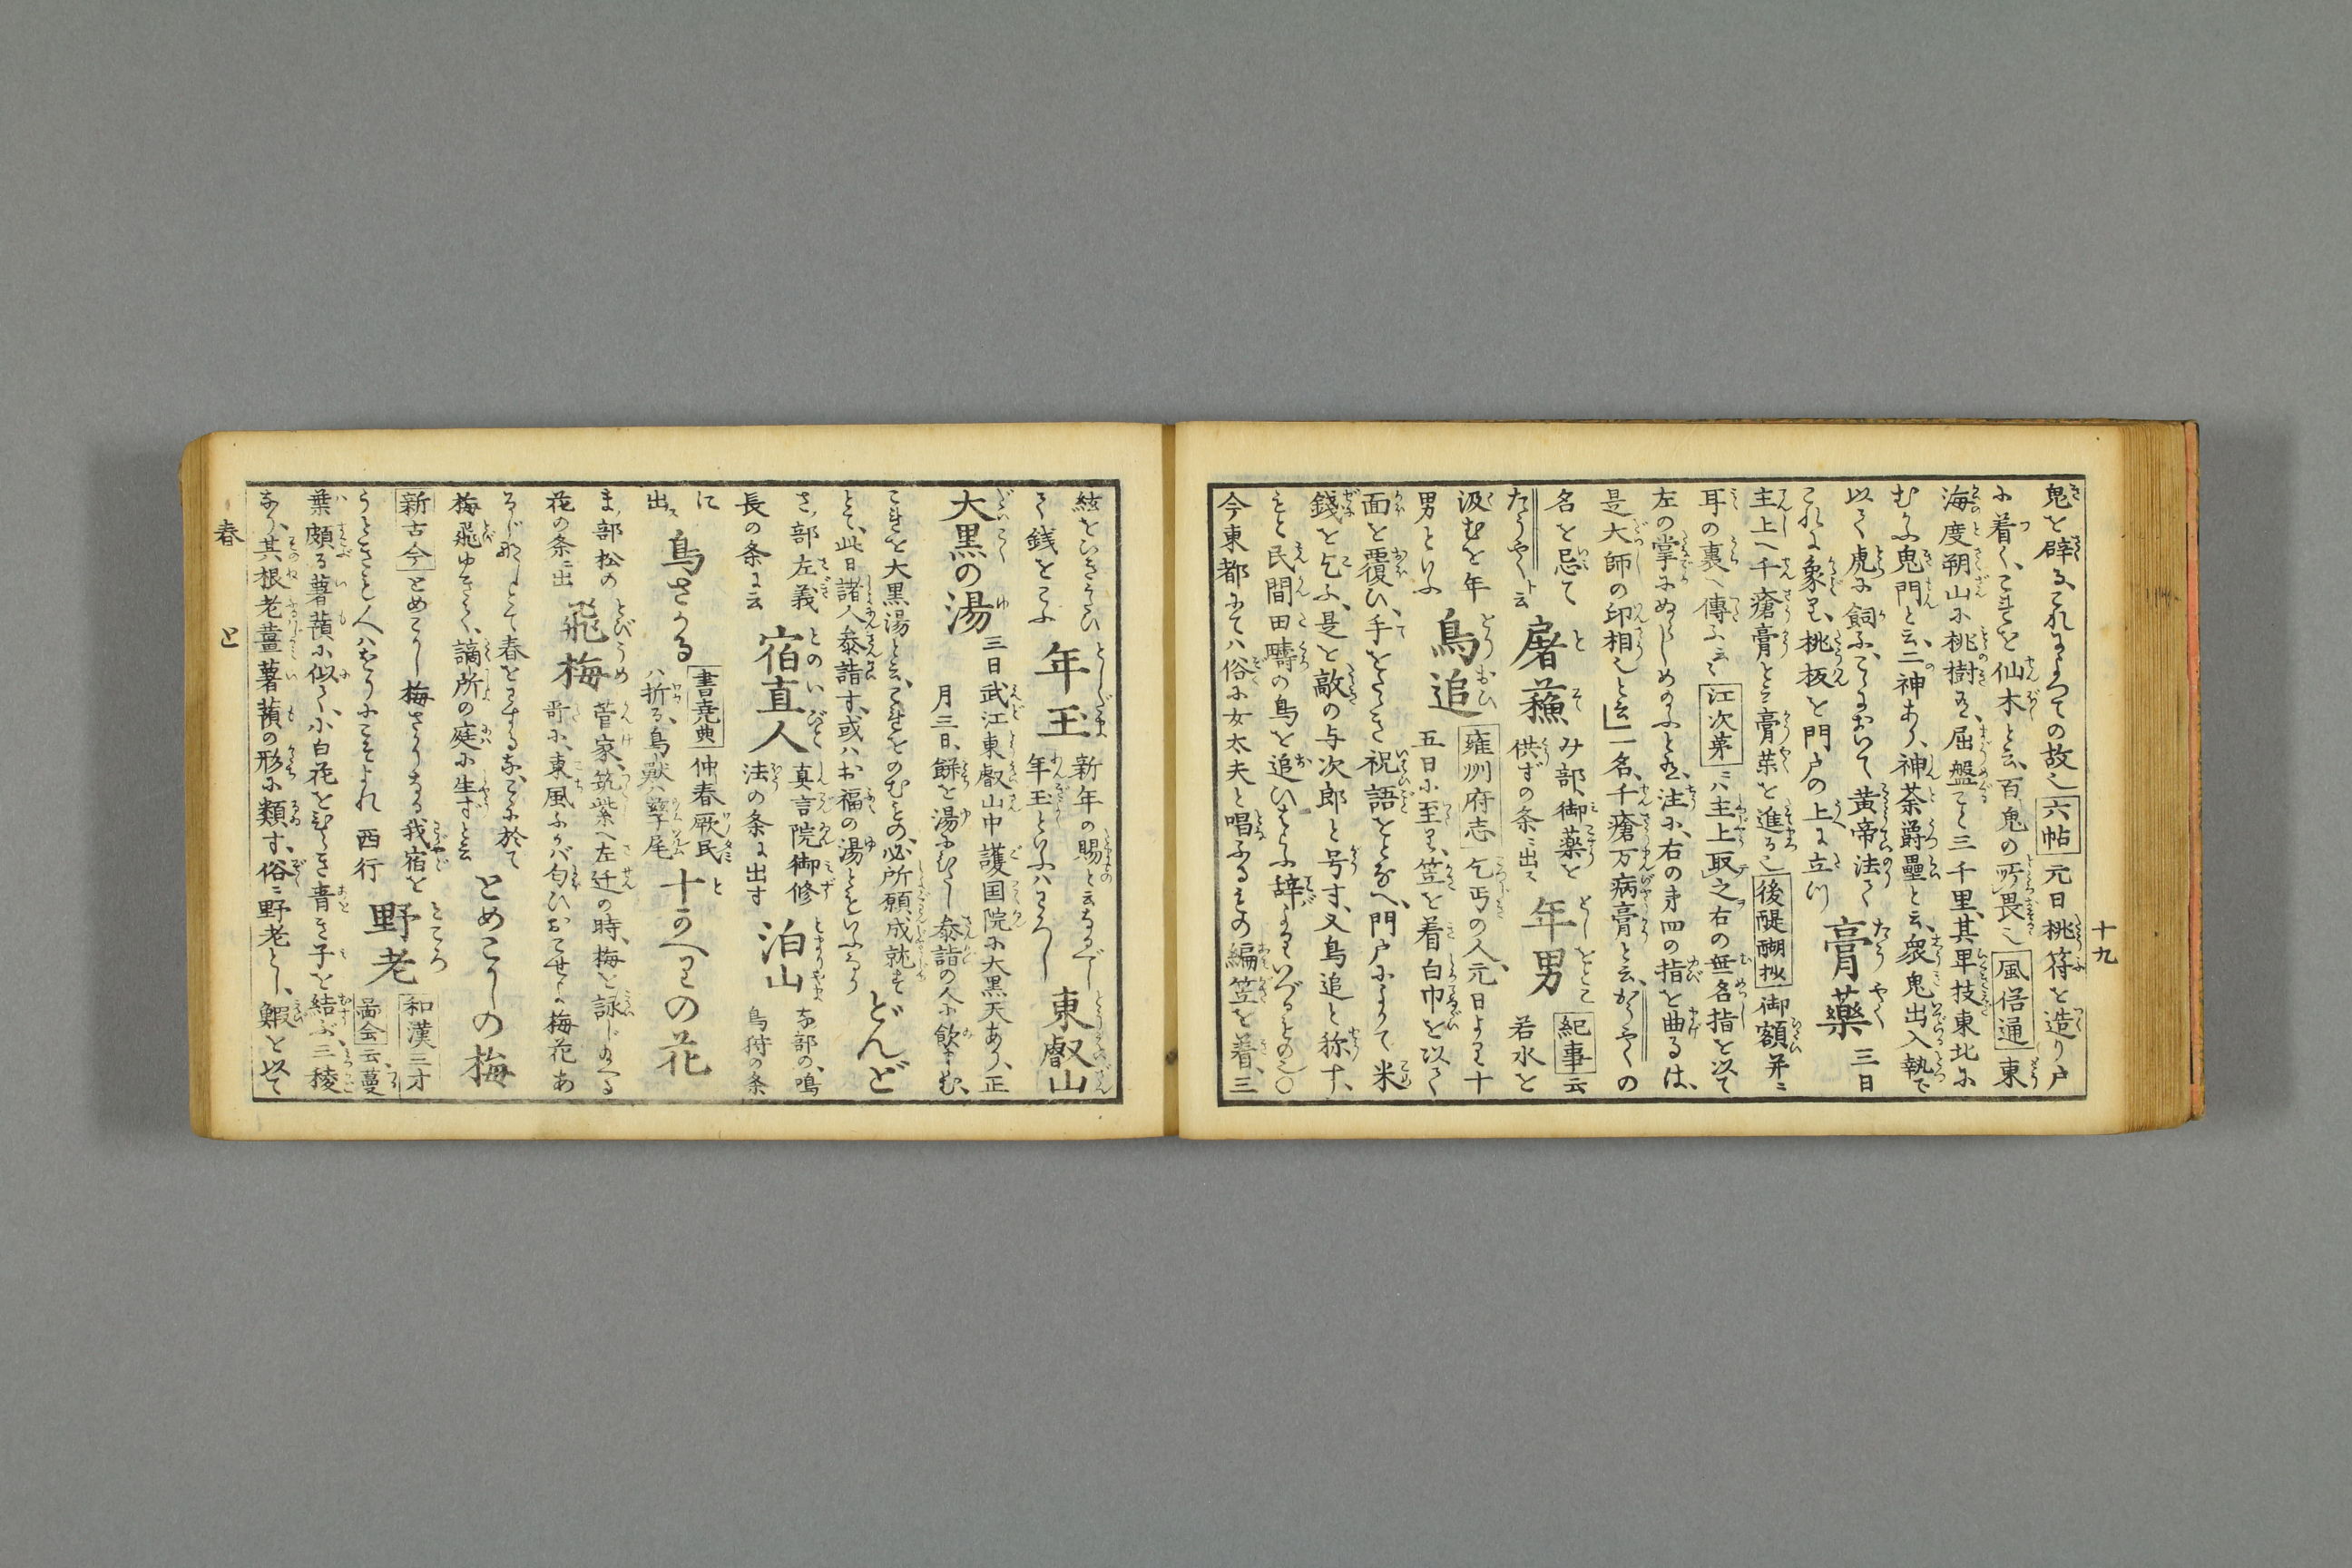 十九
鬼を辟るこれによつての故也 六帖 元日桃符を造り戸
に着く、これを仙木と云、百鬼の所畏也 風俗通 東
海度朔山に桃樹有、屈盤こと三千里、其卑枝東北に
むかふ鬼門と云、二神あり、神荼欝壘と云、衆鬼出入執て
以て虎に飼ふ、こゝにおいて黄帝法て
これに象り、桃板を門戸の上に立つ 膏藥 三日
主上へ千瘡膏と云膏薬を進る也 後醍醐抄 御額并ニ
耳の裏へ傳ふ云々 江次第 ニ主上取之右の無名指を以て
左の掌にぬらしめ給ふと有、注に、右の第四の指を曲るは、
是大師の印相也と云」一名、千瘡万病膏と云、かうやくの
名を忌て
たうやくト云 屠蘓 み部、御薬を
供ずの条ニ出ス 年男 紀事 云
若水を
汲むを年
男といふ 鳥追 雍州府志 乞丐の人、元日より十
五日に至り、笠を着白巾を以て
面を覆ひ、手をたゝき祝語をとなへ、門戸によりて米
錢を乞ふ、是を敲の与次郎と号す、又鳥追と称す、
もと民間田疇の鳥を追ひはらふ辞よりいづるもの也○
今東都にては俗に女太夫と唱ふるもの編笠を着、三
絃をひきうたひ
て銭をこふ 年玉 新年の賜と云なるべし
年玉といふハわろし 東叡山
大黒の湯 三日武江東叡山中護国院に大黒天あり、正
月三日、餅を湯にひたし参詣の人に飲しむ、
これを大黒湯と云、これをのむもの、必所願成就す
とて、此日諸人参詣す、或ハお福の湯ともいふなり どんど
さ部左義
長の条に云 宿直人 真言院御修
法の条に出す 泊山 な部の、鳴
鳥狩の条
に
出ス 鳥さかる 書堯典 仲春厥民
ハ折る、鳥獣ハ孳尾 十かへりの花
ま部松の
花の条ニ出 飛梅 菅家、筑紫へ左迁の時、梅を詠じ給へる
哥に、東風ふかバ匂ひおこせよ梅花あ
るじなしとて春をわするな、こゝに於て
梅飛ゆきて、謫所の庭に生ずと云 とめこかしの梅
新古今 とめこかし梅さかりなる我宿を
うときも人ハをりにこそよれ 西行 野老 和漢三才
啚会 云、蔓
葉頗る薯蕷に似て、小白花をひらき青き子を結ぶ、三稜
あり、其根老薑薯蕷の形に類す、俗ニ野老とし、鰕を以て
春 と